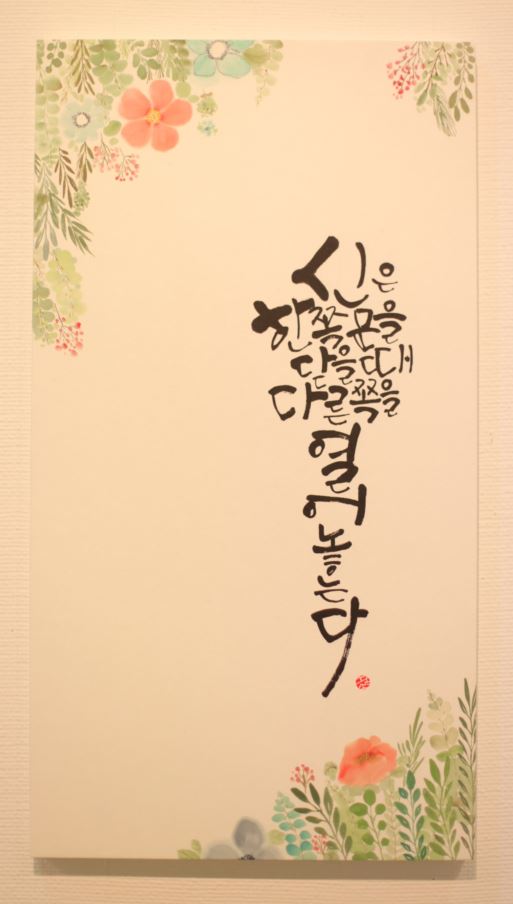 신은
한쪽 문을
닫을 때
다른 쪽을
열
어
놓
는
다